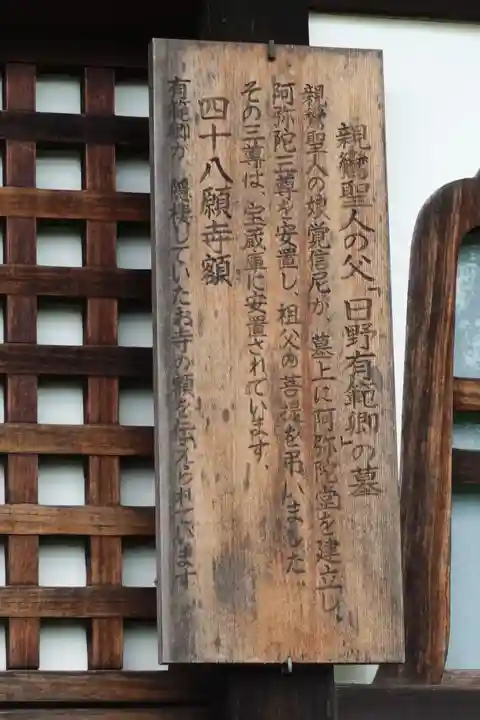 親鸞聖人の父「日野有範卿」の墓
親鸞聖人の娘覚信尼が、墓上に阿弥陀堂を建立し
阿弥陀三尊を安置し、祖父の菩提を弔いました。
その三尊は、宝蔵庫に安置されています。
四十八願寺額
有範卿が隠棲していたお寺の額を伝えられています